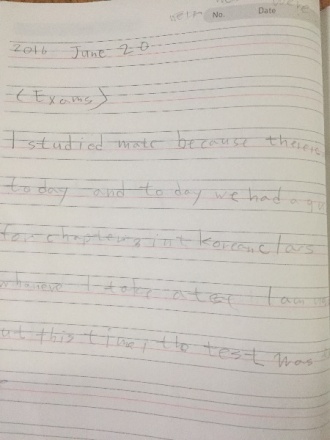 No. Date
2016 June 20
(Exams)
I studied mate because
today and today we had a
for chapters int Korean clas
I take atest I am
ut this time, the test was